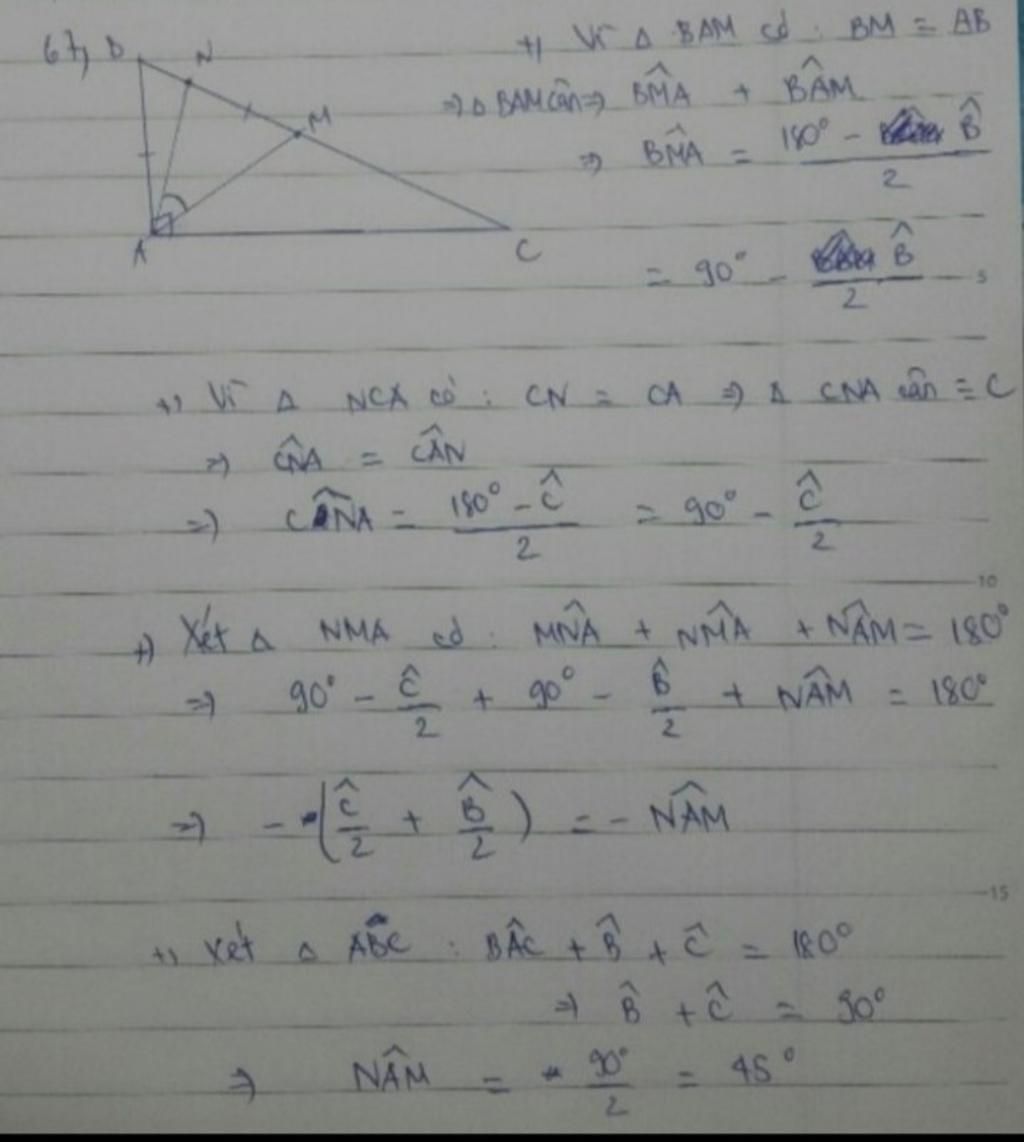 67, B N
M
A C
+) Vì Δ BAM có : BM = AB
=> Δ BAM cân => BM̂A + BÂM
=> BM̂A = (180° - B̂)/2
= 90° - B̂/2
5
+) Vì Δ NCA có : CN = CA => Δ CNA cân ≡ C
=> CN̂A = CÂN
=> CN̂A = (180° - Ĉ)/2 = 90° - Ĉ/2
10
+) Xét Δ NMA có : MN̂A + NM̂A + NÂM = 180°
=> 90° - Ĉ/2 + 90° - B̂/2 + NÂM = 180°
=> - (Ĉ/2 + B̂/2) = - NÂM
15
+) Xét Δ ABC : BÂC + B̂ + Ĉ = 180°
=> B̂ + Ĉ = 90°
=> NÂM = 90°/2 = 45°